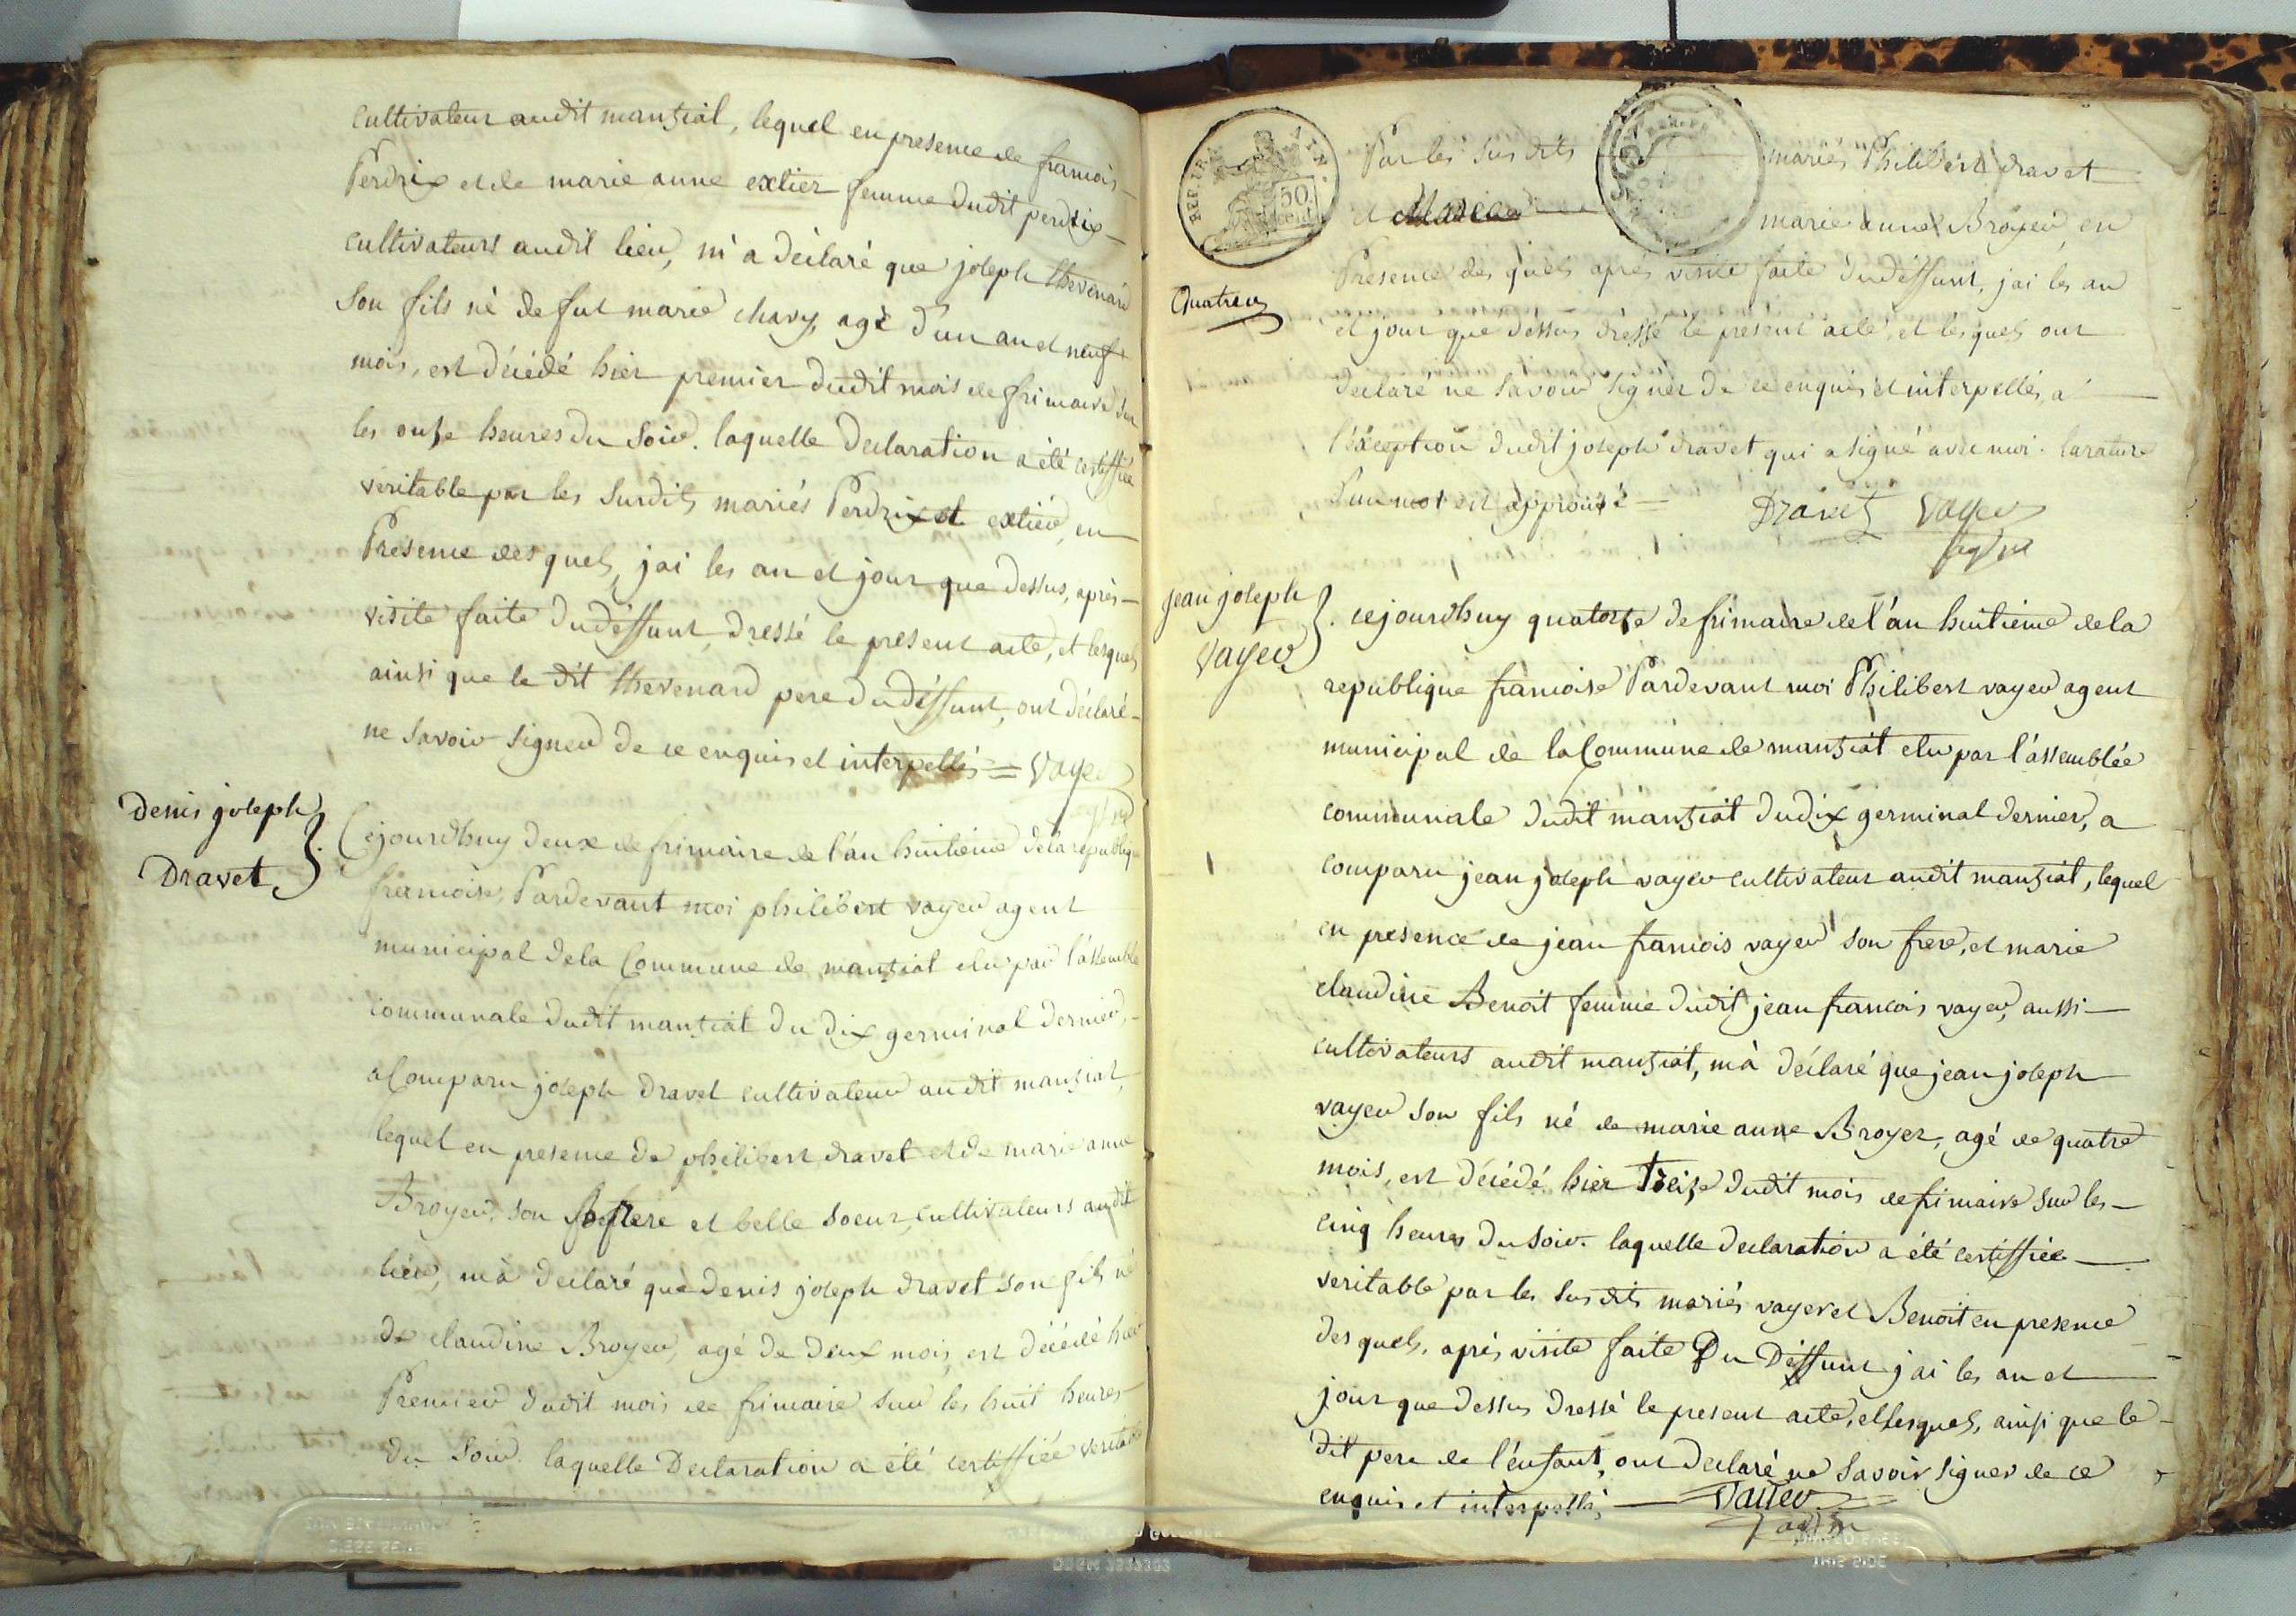 cultivateur audit manziat, lequel en presence de francois
Perdrix et de marie anne extier femme dudit perdrix
cultivateurs audit lieu, m'a déclaré que joseph thevenard
son fils né de fut marie chavy, agé d'un an et neuf
mois, est décédé hier premier dudit mois de frimaire sur
les onze heures du soir. laquelle declaration a été certiffiée
veritable par les susdits mariés Perdrix et extier, en
Presence des quels, j'ai les an et jour que dessus, après
visite faite du deffunt, dressé le present acte, et lesquels
ainsi que le dit thevenard pere du deffunt, ont déclaré
ne savoir signer de ce enquis et interpellés = Vayer
agt m
Denis joseph
Dravet
Cejourdhuy deux de frimaire de l'an huitieme de la republique
francoise, Pardevant moi philibert vayer agent
municipal de la Commune de manziat elu par l'assemblée
communale dudit manziat du dix germinal dernier,
a Comparu joseph Dravet cultivateur audit manziat,
lequel en presence de philibert dravet et de marie anne
Broyer, son frere et belle soeur, cultivateurs audit
lieu, m'a declaré que denis joseph dravet son fils né
de claudine Broyer, agé de deux mois, est décédé hier
Premier dudit mois de frimaire sur les huit heures
du soir. laquelle Declaration a été certiffiée veritable
REP. FRA.
50
cent.
Par les sus dits mariés Philibert dravet
et marie anne Broyer, en
Quatre
Presence des quels après visite faite du deffunt, j'ai les an
et jour que dessus dressé le présent acte, et lesquels ont
declaré ne savoir signer de ce enquis et interpellés, a
l'exception dudit joseph dravet qui a signé avec moi. la rature
d'un mot est approuvé = Dravet Vayer
agt m
jean joseph
Vayer
cejourdhuy quatorze de frimaire de l'an huitieme de la
republique francoise Pardevant moi Philibert vayer agent
municipal de la Commune de manziat elu par l'assemblée
communale dudit manziat du dix germinal dernier, a
comparu jean joseph vayer cultivateur audit manziat, lequel
en presence de jean francois vayer son frere, et marie
claudine Benoit femme dudit jean francois vayer, aussi
cultivateurs audit manziat, m'a déclaré que jean joseph
vayer son fils né de marie anne Broyer, agé de quatre
mois, est décédé hier treize dudit mois de frimaire sur les
cinq heures du soir. laquelle declaration a été certiffiée
veritable par les sus dits mariés vayer et Benoit en presence
des quels, après visite faite Du Deffunt j'ai les an et
jour que dessus dressé le present acte, et lesquels, ainsi que le
dit pere de l'enfant, ont declaré ne savoir signer de ce
enquis et interpellés Vayer
agt m